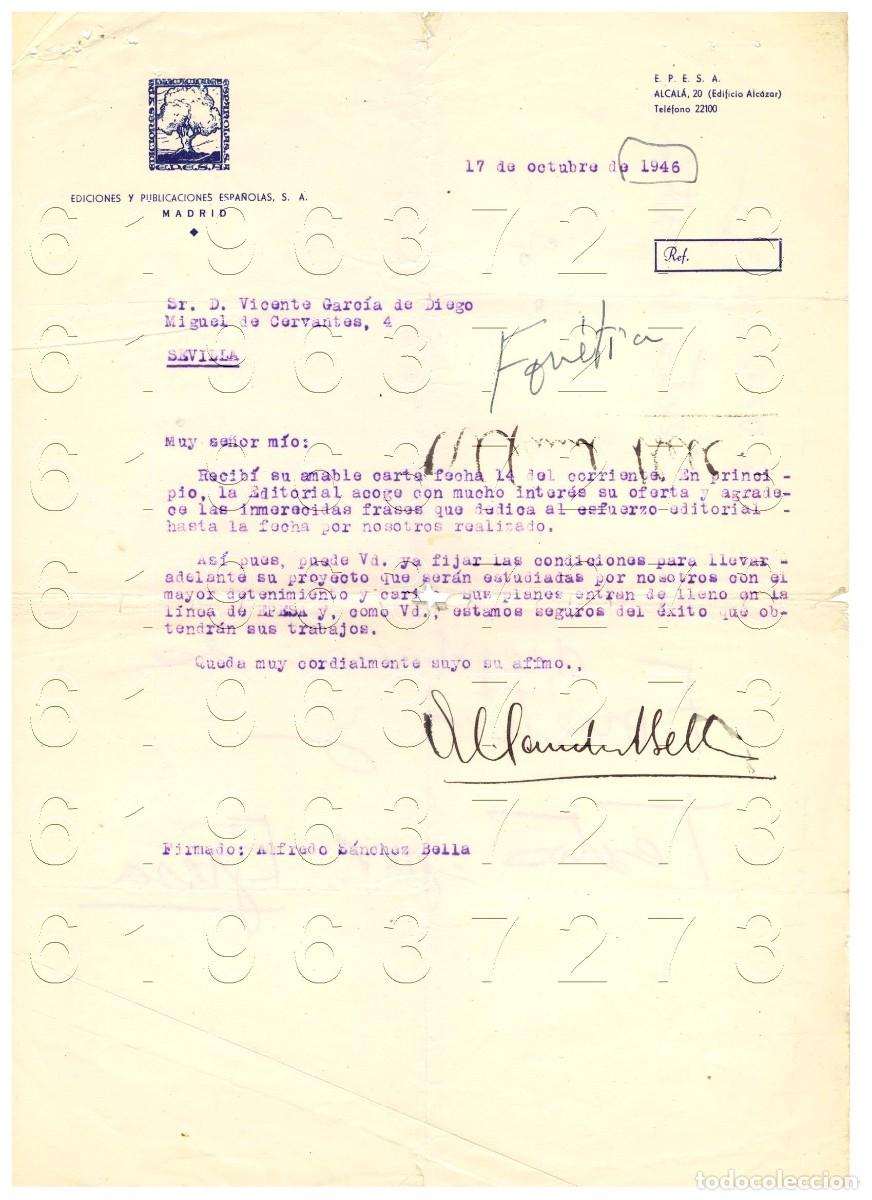 E. P. E. S. A.
ALCALÁ, 20 (Edificio Alcázar)
Teléfono 22100
E.P.E.S.A.
EDICIONES Y PUBLICACIONES ESPAÑOLAS, S. A.
MADRID
17 de octubre de 1946
Ref.
Sr. D. Vicente García de Diego
Miguel de Cervantes, 4
SEVILLA
Fonética
Muy señor mío:
Recibí su amable carta fecha 14 del corriente. En princi-
pio, la Editorial acoge con mucho interés su oferta y agrade-
ce las inmerecidas frases que dedica al esfuerzo editorial -
hasta la fecha por nosotros realizado.
Así pues, puede Vd. ya fijar las condiciones para llevar -
adelante su proyecto que serán estudiadas por nosotros con el
mayor detenimiento y cari Sus planes entran de lleno en la
línea de EPESA y, como Vd., estamos seguros del éxito que ob-
tendrán sus trabajos.
Queda muy cordialmente suyo su affmo.,
Firmado: Alfredo Sánchez Bella
619637273
619637273
619637273
619637273
619637273
619637273
619637273
todocoleccion